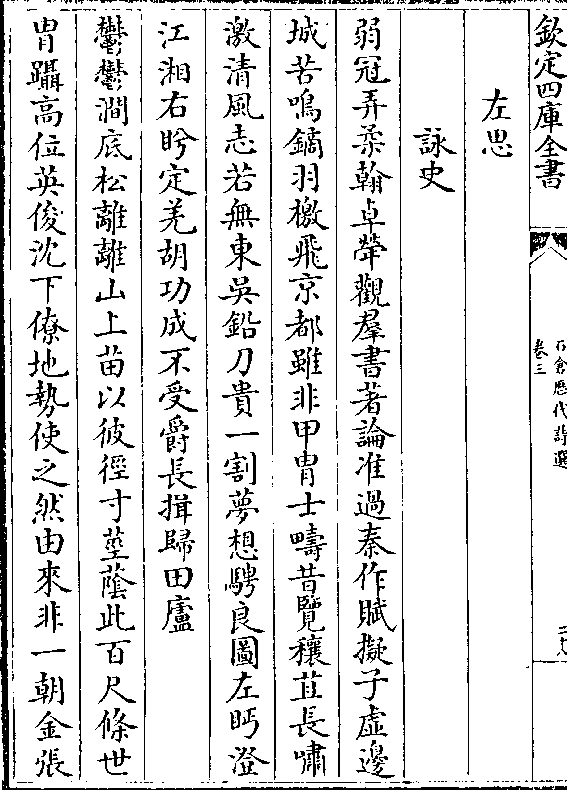 欽定四庫全書
石倉歷代詩選
卷三
左思
詠史
弱冠弄柔翰卓犖觀羣書著論准過秦作賦擬子虛邊
城苦鳴鏑羽檄飛京都雖非甲冑士疇昔覽穰苴長嘯
激清風志若無東吳鉛刀貴一割夢想騁良圖左眄澄
江湘右盻定羌胡功成不受爵長揖歸田廬
鬱鬱澗底松離離山上苗以彼徑寸莖蔭此百尺條世
冑躡高位英俊沈下僚地勢使之然由來非一朝金張